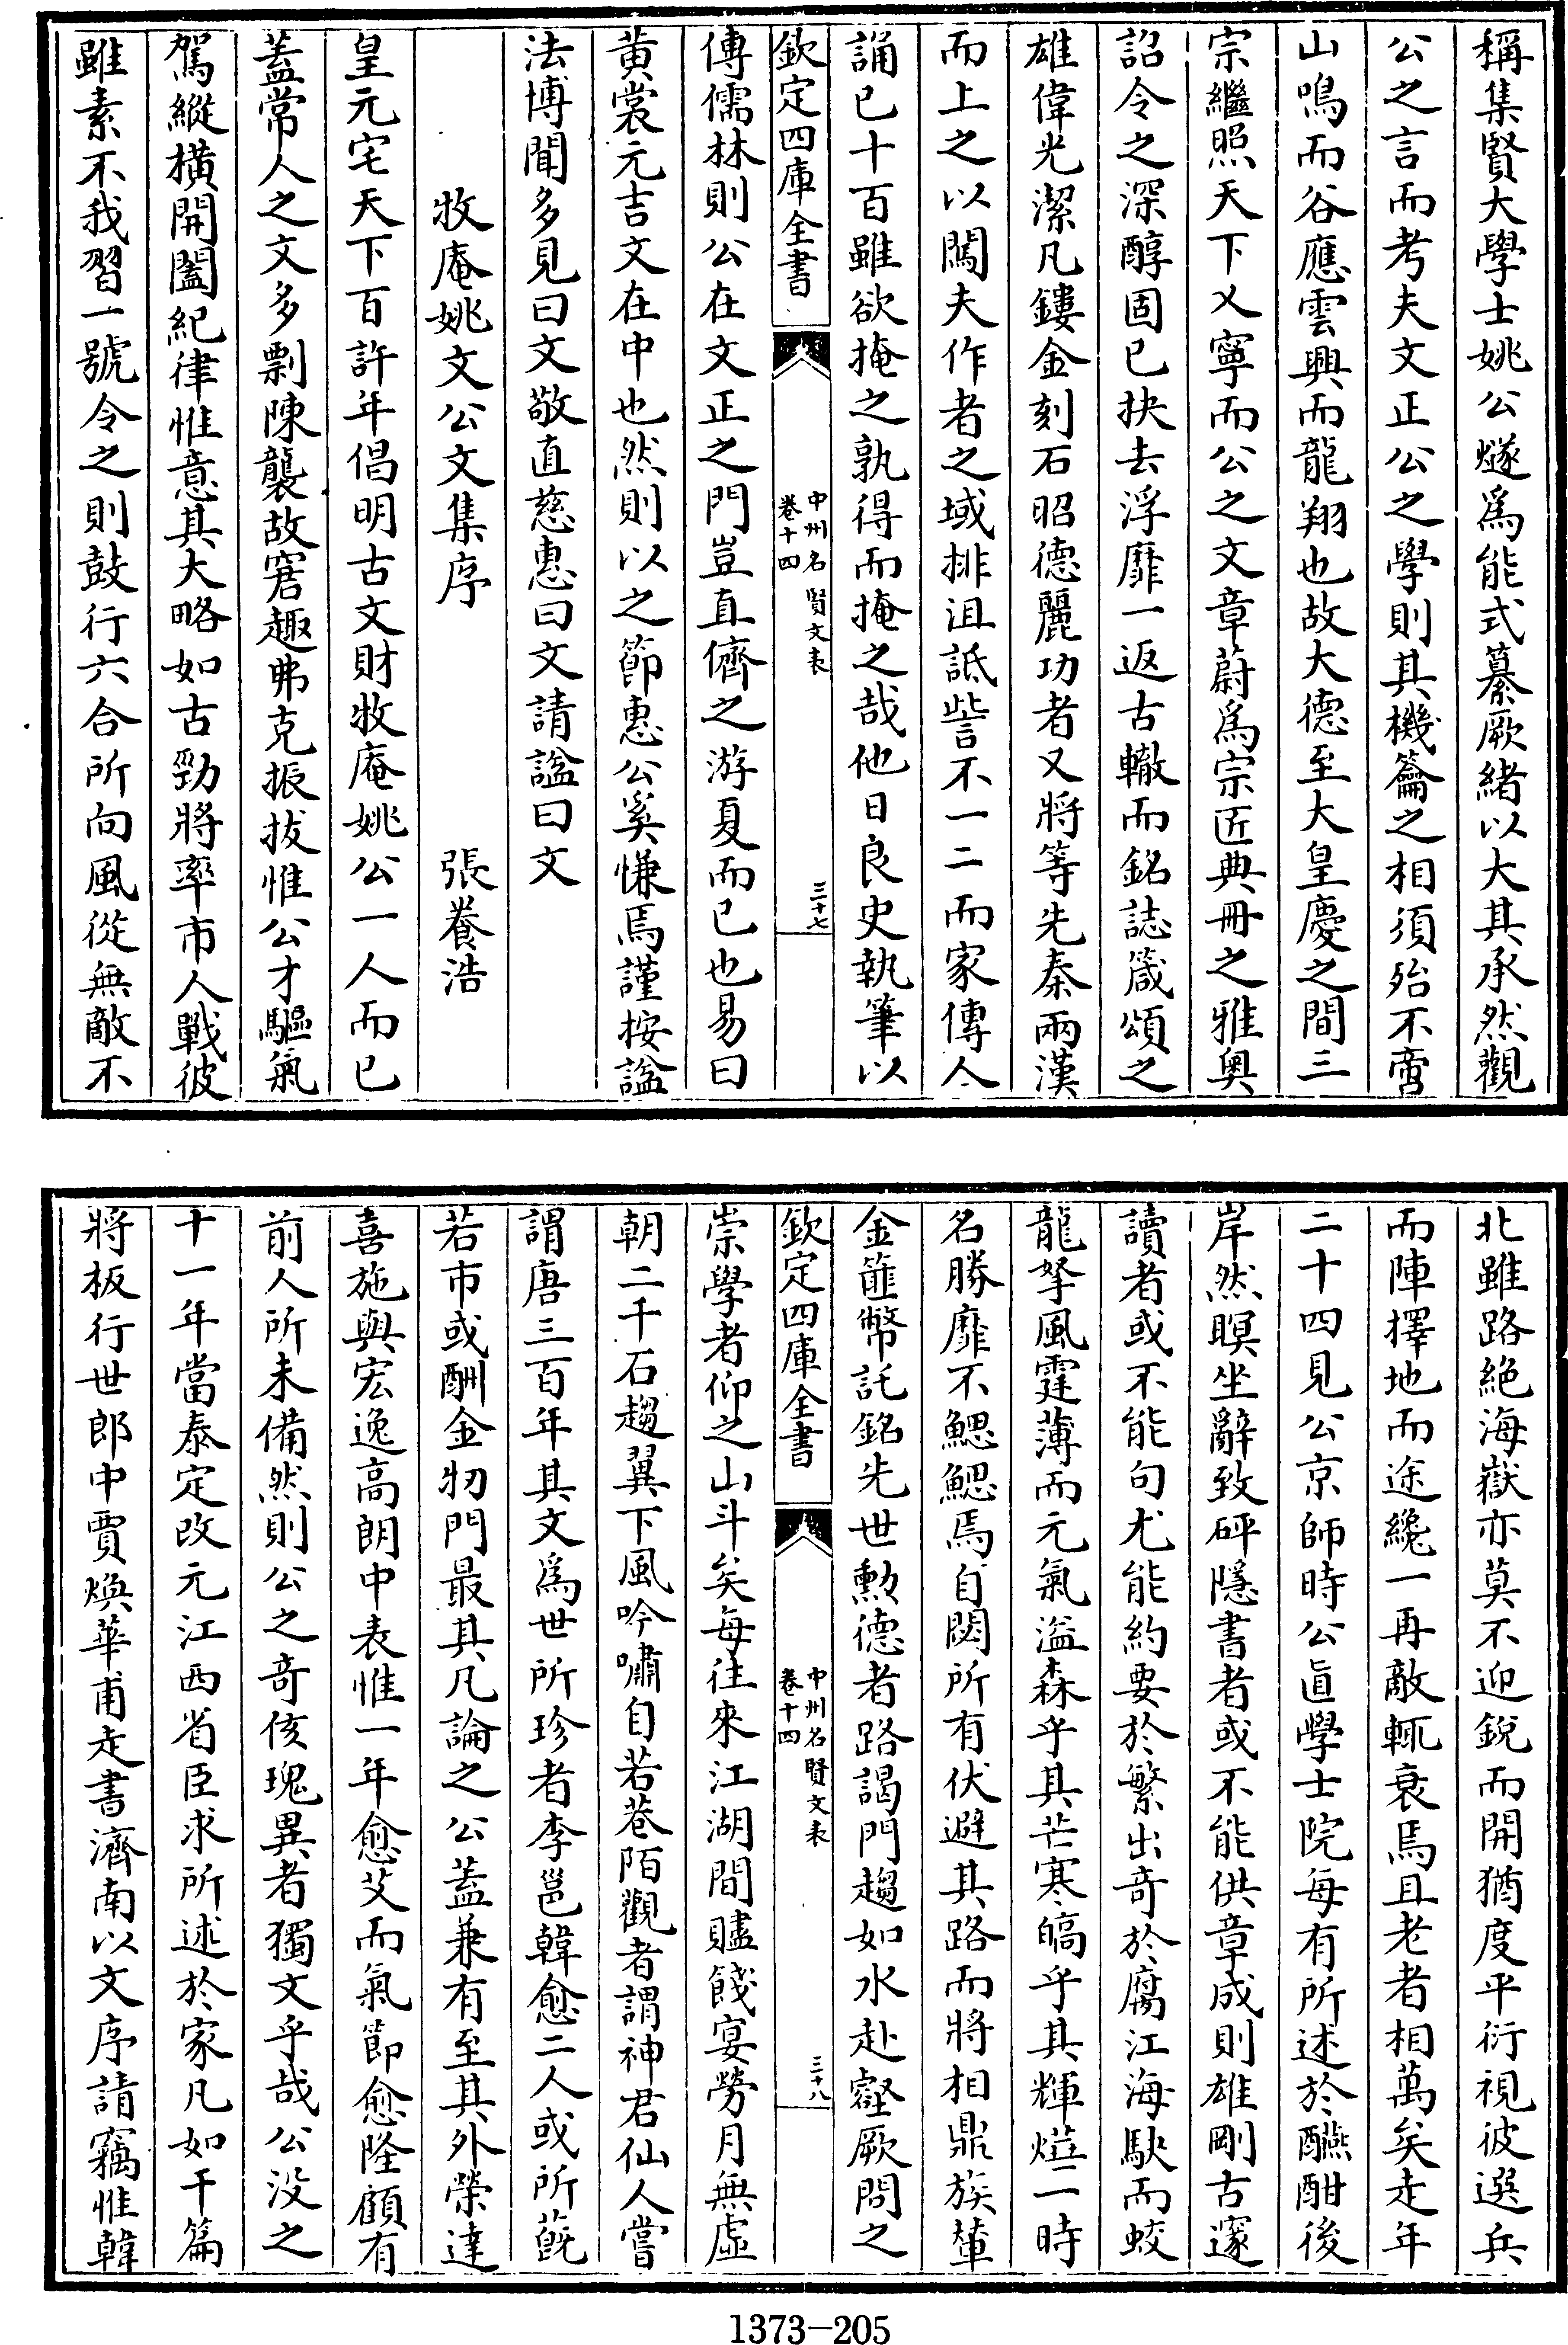 稱集賢大學士姚公燧爲能式纂厥緒以大其承然觀
公之言而考夫文正公之學則其機籥之相須殆不啻
山鳴而谷應雲興而龍翔也故大德至大皇慶之間三
宗繼照天下乂寧而公之文章蔚爲宗匠典冊之雅奧
詔令之深醇固已抉去浮靡一返古轍而銘誌箴頌之
雄偉光潔凡鏤金刻石昭德麗功者又將等先秦兩漢
而上之以闖夫作者之域排沮詆訾不一二而家傳人
誦已十百雖欲掩之孰得而掩之哉他日良史執筆以
欽定四庫全書
中州名賢文表
卷十四
三十七
傳儒林則公在文正之門豈直儕之游夏而已也易曰
黄裳元吉文在中也然則以之節惠公奚慊焉謹按諡
法博聞多見曰文敬直慈惠曰文請諡曰文
牧庵姚文公文集序
張養浩
皇元宅天下百許年倡明古文財牧庵姚公一人而已
蓋常人之文多剽陳襲故窘趣弗克振拔惟公才驅氣
駕縱橫開闔紀律惟意其大略如古勁將率市人戰彼
雖素不我習一號令之則鼓行六合所向風從無敵不
北雖路絕海嶽亦莫不迎銳而開猶度平衍視彼選兵
而陣擇地而途纔一再敵輒衰焉且老者相萬矣走年
二十四見公京師時公直學士院每有所述於醼酣後
岸然瞑坐辭致砰隱書者或不能供章成則雄剛古邃
讀者或不能句尤能約要於繁出奇於腐江海駛而蛟
龍拏風霆薄而元氣溢森乎其芒寒皜乎其輝燁一時
名勝靡不鰓鰓焉自閟所有伏避其路而將相鼎族輦
金篚幣託銘先世勲德者路謁門趨如水赴壑厥問之
欽定四庫全書
中州名賢文表
卷十四
三十八
崇學者仰之山斗矣每往來江湖間贐餞宴勞月無虛
朝二千石趨翼下風吟嘯自若巷陌觀者謂神君仙人嘗
謂唐三百年其文爲世所珍者李邕韓愈二人或所蓺
若市或酬金牣門最其凡論之公蓋兼有至其外榮達
喜施與宏逸高朗中表惟一年愈艾而氣節愈隆顧有
前人所未備然則公之奇侅瑰異者獨文乎哉公没之
十一年當泰定改元江西省臣求所述於家凡如干篇
將板行世郎中賈煥華甫走書濟南以文序請竊惟韓
1373-205